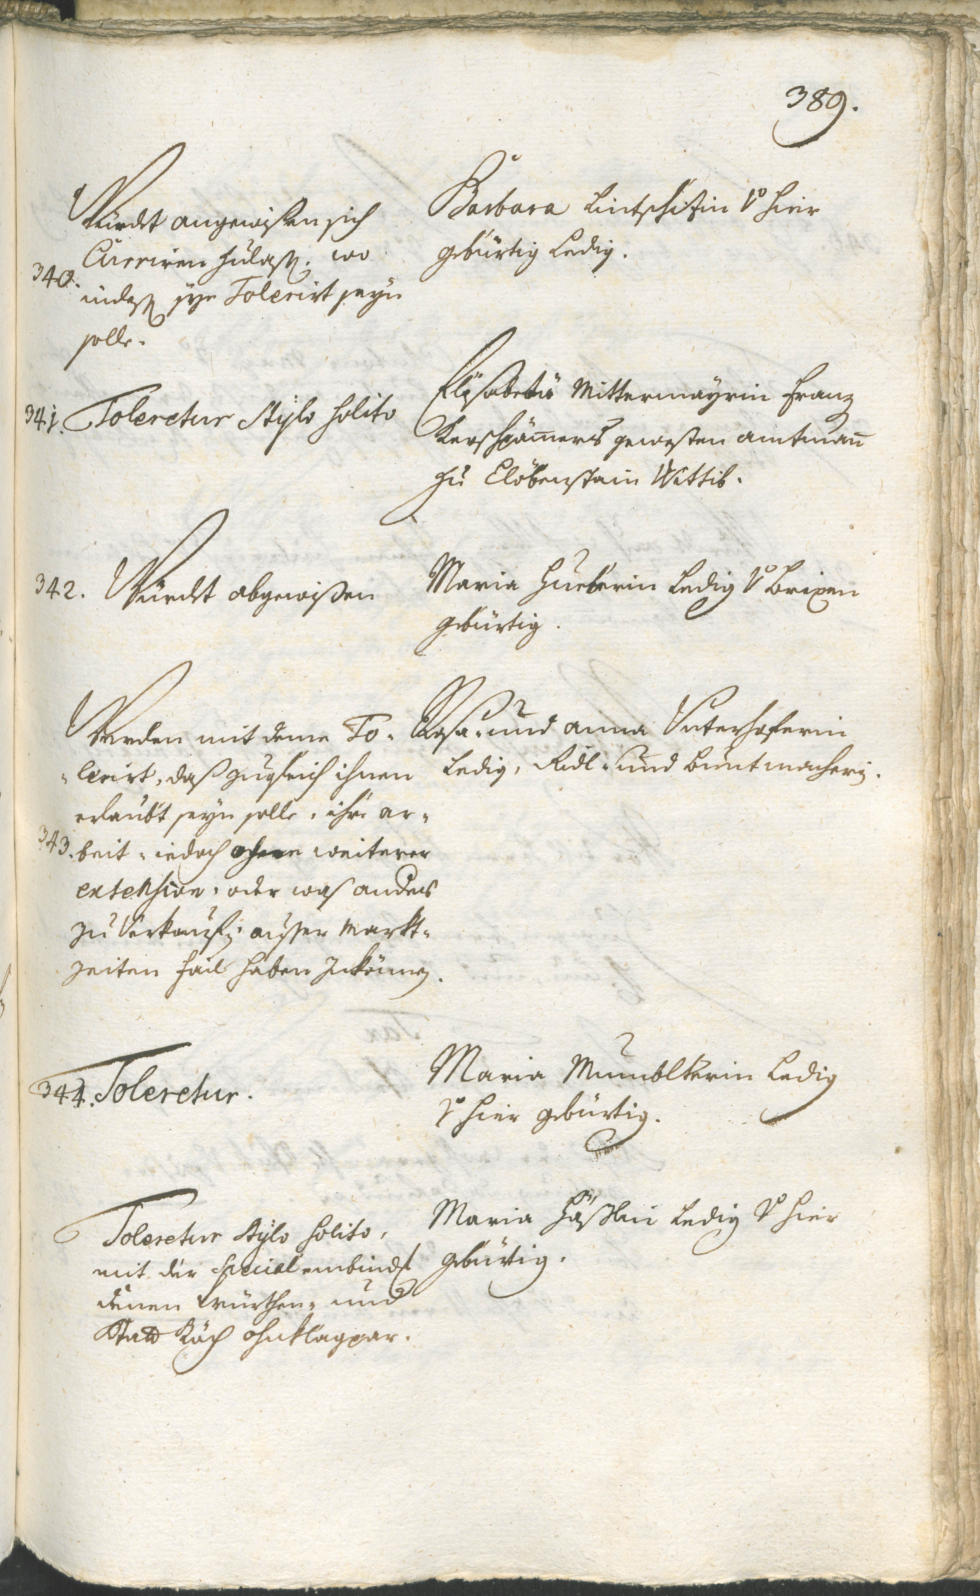 389.
Würdt angewisen sich
Curriren zulass. wo
340.
indess sye Tolerirt seyn
solle.
Barbara Lintschizin v hier
gebürtig Ledig.
341. Toleretur Stylo solito
Elisabetha Mittermayrin Franz
Kerschpamers gewesten amtman
zu Wittib.
342. Würdt abgewisen
Maria Hueberin Ledig v Brixen
gebürtig.
Werden mit deme To-
lerirt, daß zugleich ihnen
erlaubt seyn solle, ihre ar-
343. beit, iedoch ohne weiterer
extension, oder was anders
zu Verkauffen ausser Markt-
zeiten fail haben zu können.
Rosa- und anna Unterhoferin
Ledig, Ridl- und buntmacherin.
344. Toleretur.
Maria Ledig
v hier gebürtig.
Toleretur Stylo solito,
mit der Special
denen würthen- und
Statt Köch ohnklagpar.
Maria Ledig v hier
gebürtig.